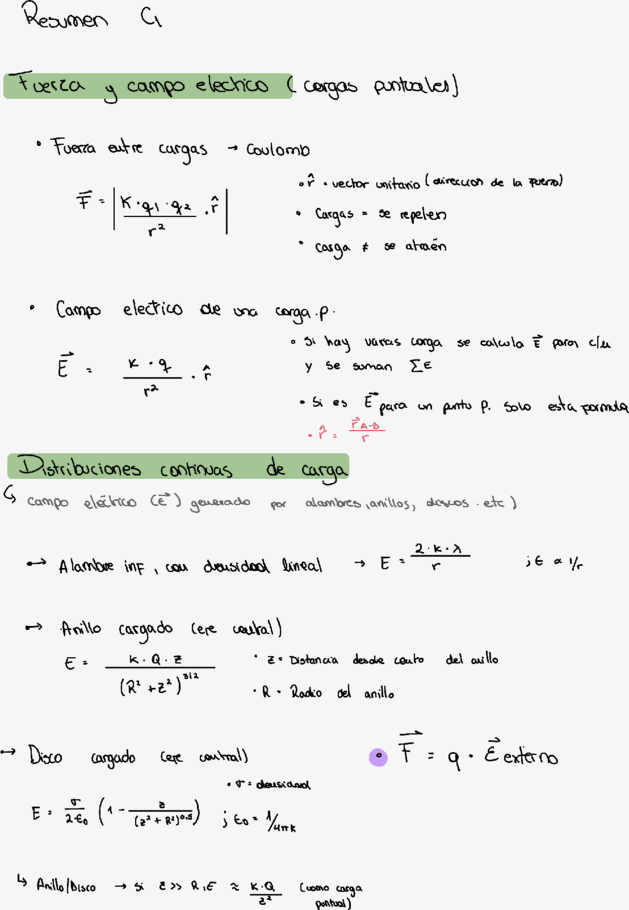 Resumen C1
Fuerza y campo electrico (cargas puntuales)
• Fuerza entre cargas → Coulomb
F⃗ = | K · q1 · q2 / r² · r̂ |
• r̂ = vector unitario (direccion de la fuerza)
• Cargas = se repelen
• carga ≠ se atraén
• Campo electrico de una carga.p.
E⃗ = K · q / r² · r̂
• Si hay varias carga se calcula E⃗ para c/u
y se suman ΣE
• Si es E⃗ para un punto p. solo esta formula
• r̂ = r⃗A-B / r
Distribuciones continuas de carga
↳ campo eléctrico (E⃗) generado por alambres, anillos, discos. etc)
↦ Alambre inf, con densidad lineal → E = 2·K·λ / r ; E ∝ 1/r
↦ Anillo cargado (eje central)
E = K · Q · z / (R² + z²)^3/2
• z = Distancia desde centro del anillo
• R = Radio del anillo
↦ Disco cargado (eje central)
• σ = densidad
E = σ / 2·ε0 (1 - z / (z² + R²)^0.5) ; ε0 = 1/4πk
• F⃗ = q · E⃗ externo
↳ Anillo/Disco → si z >> R, E ≈ K·Q / z² (como carga
puntual)